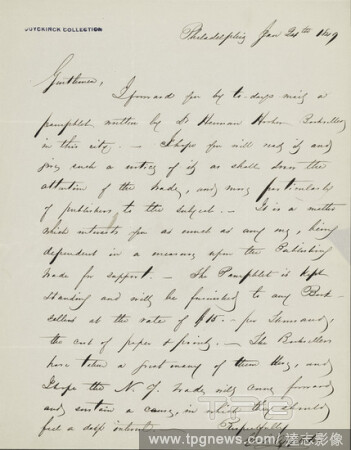 DUYCKINCK COLLECTION
Philadelphia Jan 24th 1849
Gentlemen,
I forward for by to-days mail a
pamphlet written by Dr Herman Hooker Bookseller
in this city. — I hope you will read it and
give such a notice of it as shall draw the
attention of the trade, and more particularly
of publishers to the subject. — It is a matter
which interests you as much as any one, being
dependent in a measure upon the Publishing
trade for support. — The Pamphlet is kept
standing and will be furnished to any Book-
sellers at the rate of $15 — per thousand,
the cost of paper & print. — The Booksellers
have taken a great many of them they, and
I hope the N. Y. trade, will come forward
and sustain a cause, in which they should
feel a deep interest. — Respectfully
www.tpgnews.com/達志影像